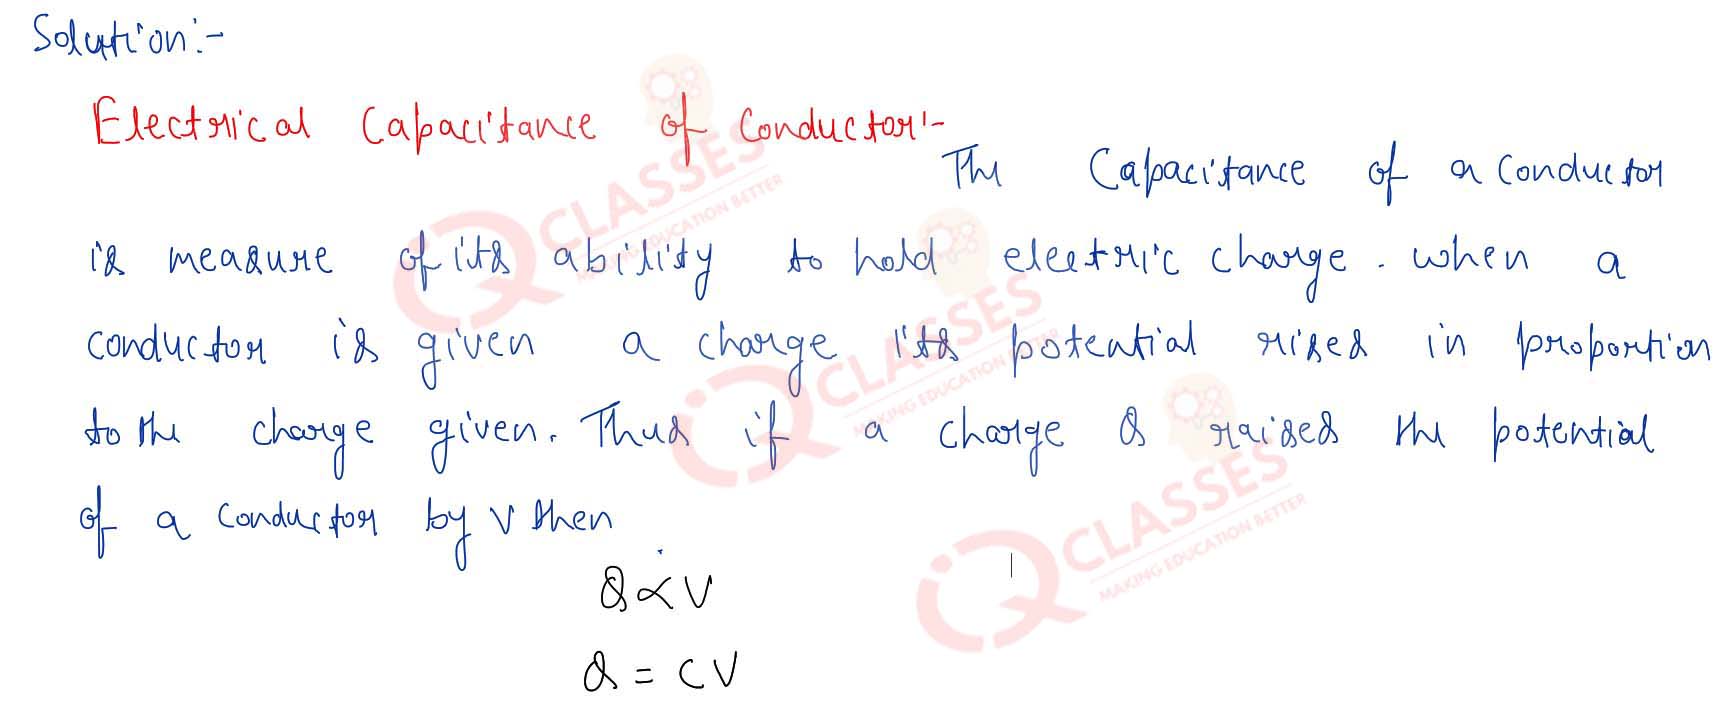 Solution:-
Electrical Capacitance of Conductor:-
The Capacitance of a conductor
is measure of its ability to hold electric charge. when a
conductor is given a charge its potential rises in proportion
to the charge given. Thus if a charge Q raises the potential
of a conductor by V then
Q ∝ V
Q = CV
CLASSES
MAKING EDUCATION BETTER
CLASSES
MAKING EDUCATION BETTER
CLASSES
MAKING EDUCATION BETTER